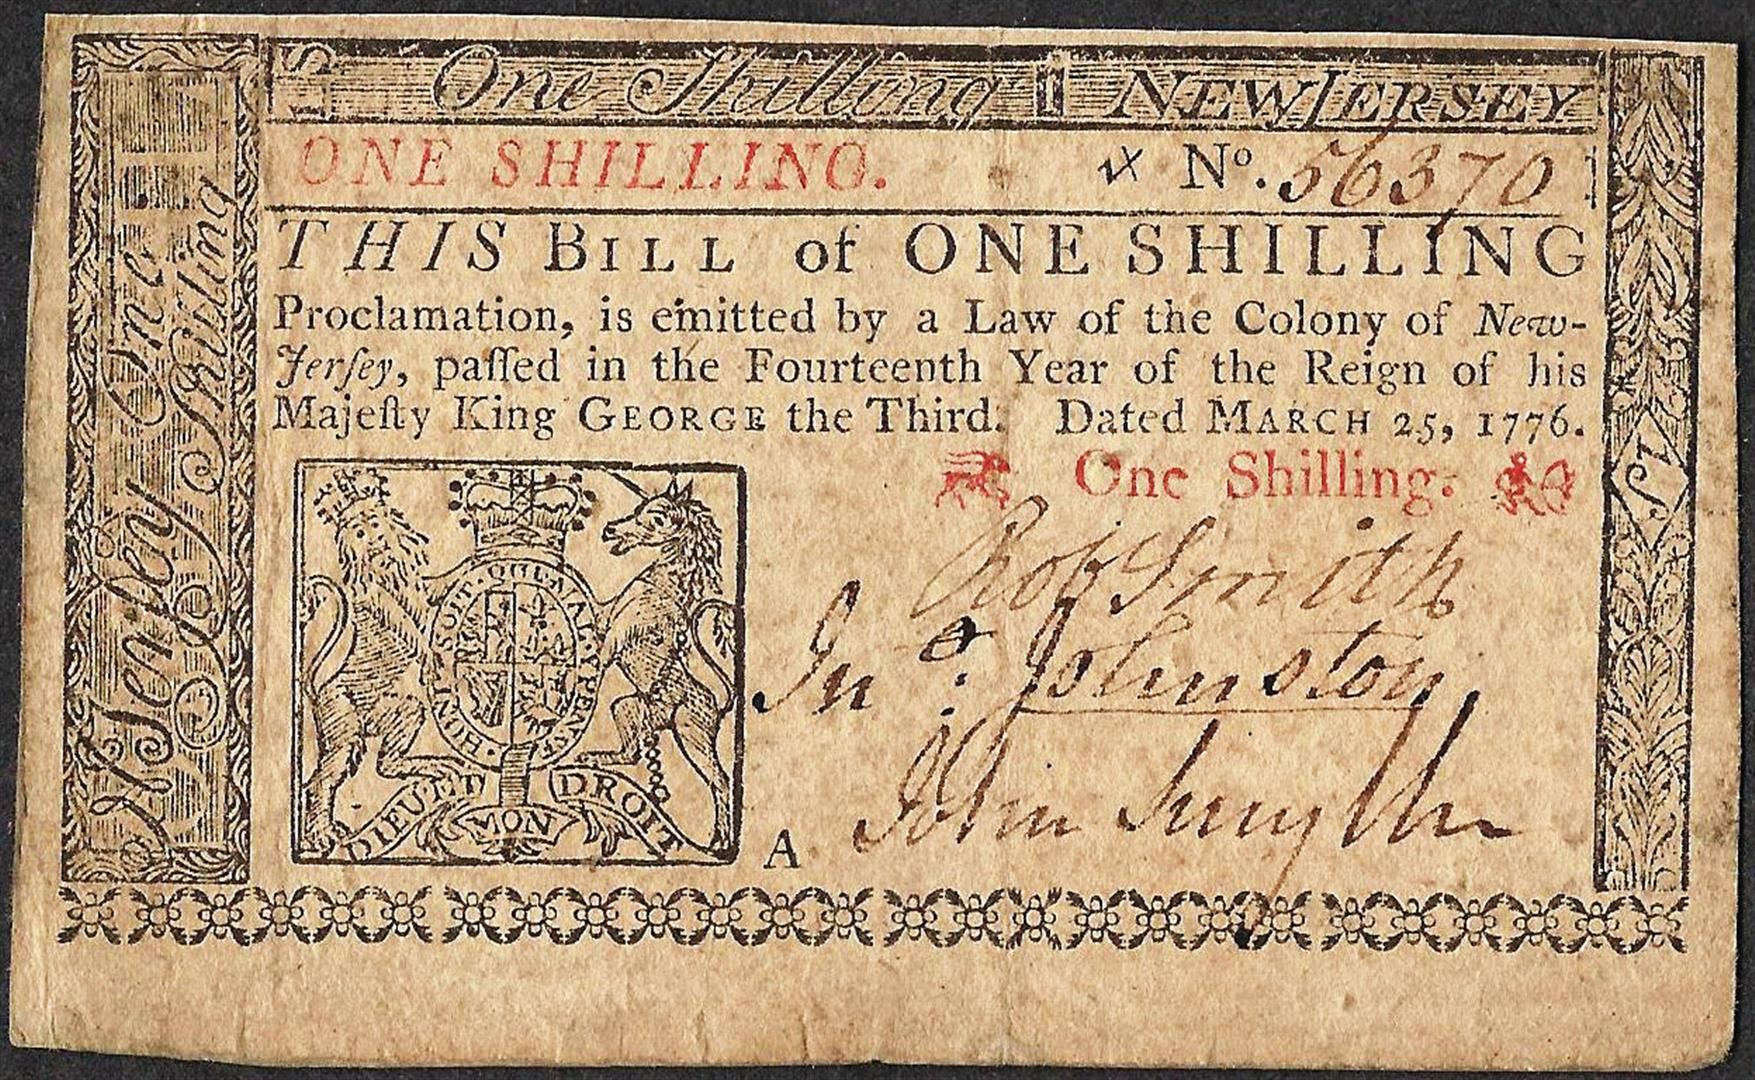 1S One Shilling 1 NEW JERSEY
ONE SHILLING. No. 56370
THIS BILL of ONE SHILLING
Proclamation, is emitted by a Law of the Colony of New-
Jerſey, paſſed in the Fourteenth Year of the Reign of his
Majeſty King GEORGE the Third. Dated MARCH 25, 1776.
One Shilling.
Robt Smith
Jno. Johnston
John Smyth
HONI · SOIT · QUI MAL Y PENSE
DIEU ET MON DROIT
A
N Jerſey One
Shilling
1S